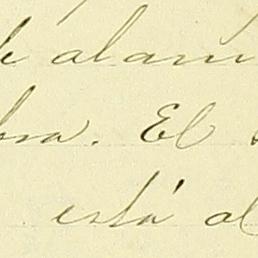 alam
bra. El
está al